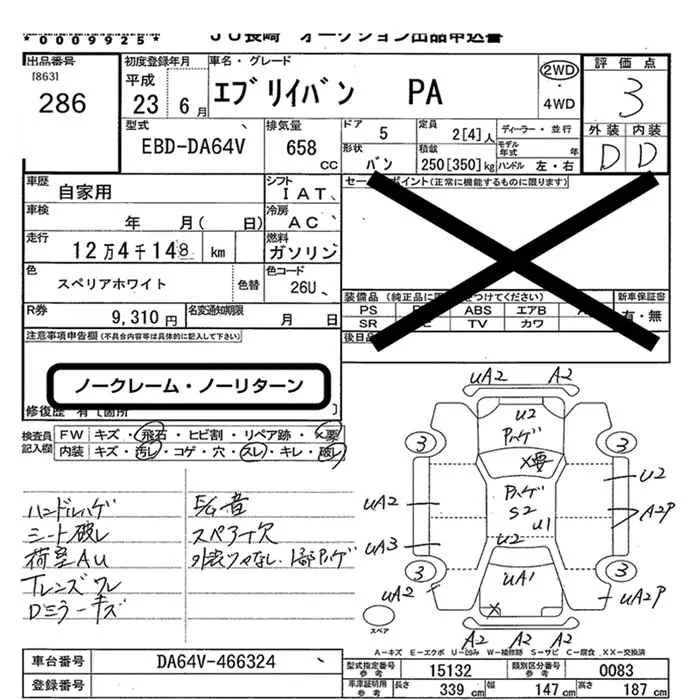 *0009925*
JU長崎 オークション出品申込書
出品番号
[863]
286
初度登録年月
平成
23 6月
車名・グレード
エブリイバン PA
2WD
・
4WD
評価点
3
外装 内装
D D
型式
EBD-DA64V
排気量
658
CC
ドア 5
定員 2[4]人
ディーラー・並行
形状 バン
積載 250[350]kg
モデル年式 年
ハンドル 左・右
車歴
自家用
シフト
IAT
車検
年 月( 日)
冷房
AC
走行
12万4千148 km
燃料
ガソリン
色
スペリアホワイト
色替
色コード
26U
R券
9,310円
名変通知期限
月 日
セールスポイント(正常に機能するものに限ります)
装備品(純正品に つけてください)
新車保証書
PS ABS エアB
有・無
SR TV カワ
後日品
注意事項申告欄(不具合内容等は具体的に記入して下さい)
ノークレーム・ノーリターン
修復歴 有[箇所 ]
検査員記入欄
FW キズ・飛石・ヒビ割・リペア跡・×要
内装 キズ・汚レ・コゲ・穴・スレ・キレ・破レ
ハンドルハゲ
シート破レ
荷室AU
Tレンズワレ
Dミラーキズ
E/G音
スペアー欠
外装ツヤなし・1部Pハゲ
UA2 A2
U2
Pハゲ
3 3
X要
Pハゲ
S2
U1
U2
UA2
U2
A2P
UA3
3 3
UA1
UA2
UA2P
X
A2 A2 A2
スペア
A－キズ E－エクボ U－凹み W－補修跡 S－サビ C－腐食 XX－交換済
車台番号
DA64V-466324
登録番号
型式指定番号
参考
15132
類別区分番号
参考
0083
車庫証明用
参考
長さ 339cm
幅 147cm
高さ 187cm